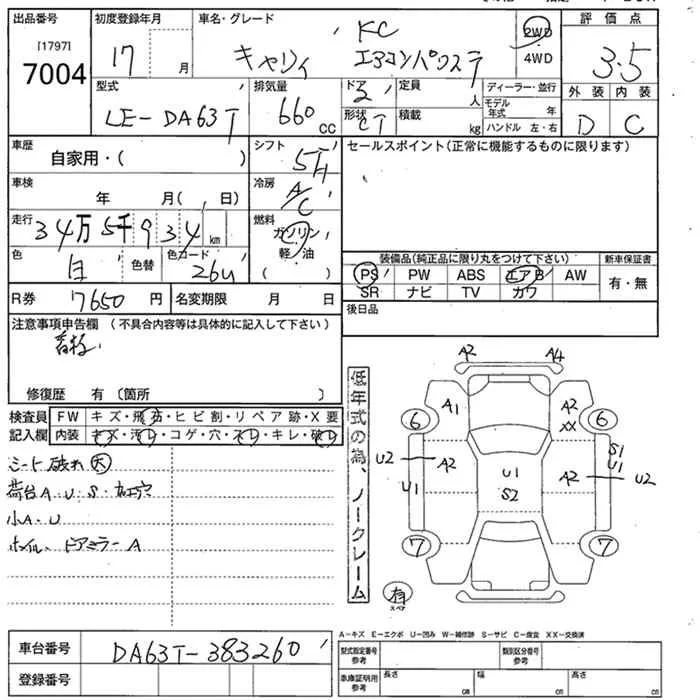 出品番号
[1797]
7004
初度登録年月
17 月
車名・グレード
キャリィ
KC
エアコンパワステ
2WD
4WD
評価点
3.5
外装 内装
D C
型式
LE-DA63T
排気量
660 cc
ドア
2
形状
CT
定員
人
積載
kg
ディーラー・並行
モデル年式 年
ハンドル 左・右
車歴
自家用・( )
シフト
5
車検
年 月( 日)
冷房
A/C
走行
34万5千934km
燃料
ガソリン
軽・油
( )
色
白
色替
色カード
26U
R券
7650円
名変期限 月 日
セールスポイント(正常に機能するものに限ります)
装備品(純正品に限り丸をつけて下さい)
PS PW ABS エアB AW
SR ナビ TV カワ
新車保証書
有・無
後日品
注意事項申告欄(不具合内容等は具体的に記入して下さい)
修復歴 有〔箇所 〕
検査員記入欄
FW キズ・飛石・ヒビ割・リペア跡・X要
内装 キズ・汚レ・コゲ・穴・スレ・キレ・破レ
シート破れ大
荷台A・U・S・
小A・U
ホイル・ドアミラーA
低年式の為、ノークレーム
A2 A4
A1 A2
XX
6 6
U2 A2 U1 A2 S1
U1 U2
U1 S2
7 7
有
スペア
A-キズ E-エクボ U-凹み W-補修跡 S-サビ C-腐食 XX-交換済
車台番号
DA63T-383260
登録番号
型式指定番号
参考
類別区分番号
参考
車庫証明用
参考
長さ cm
幅 cm
高さ cm